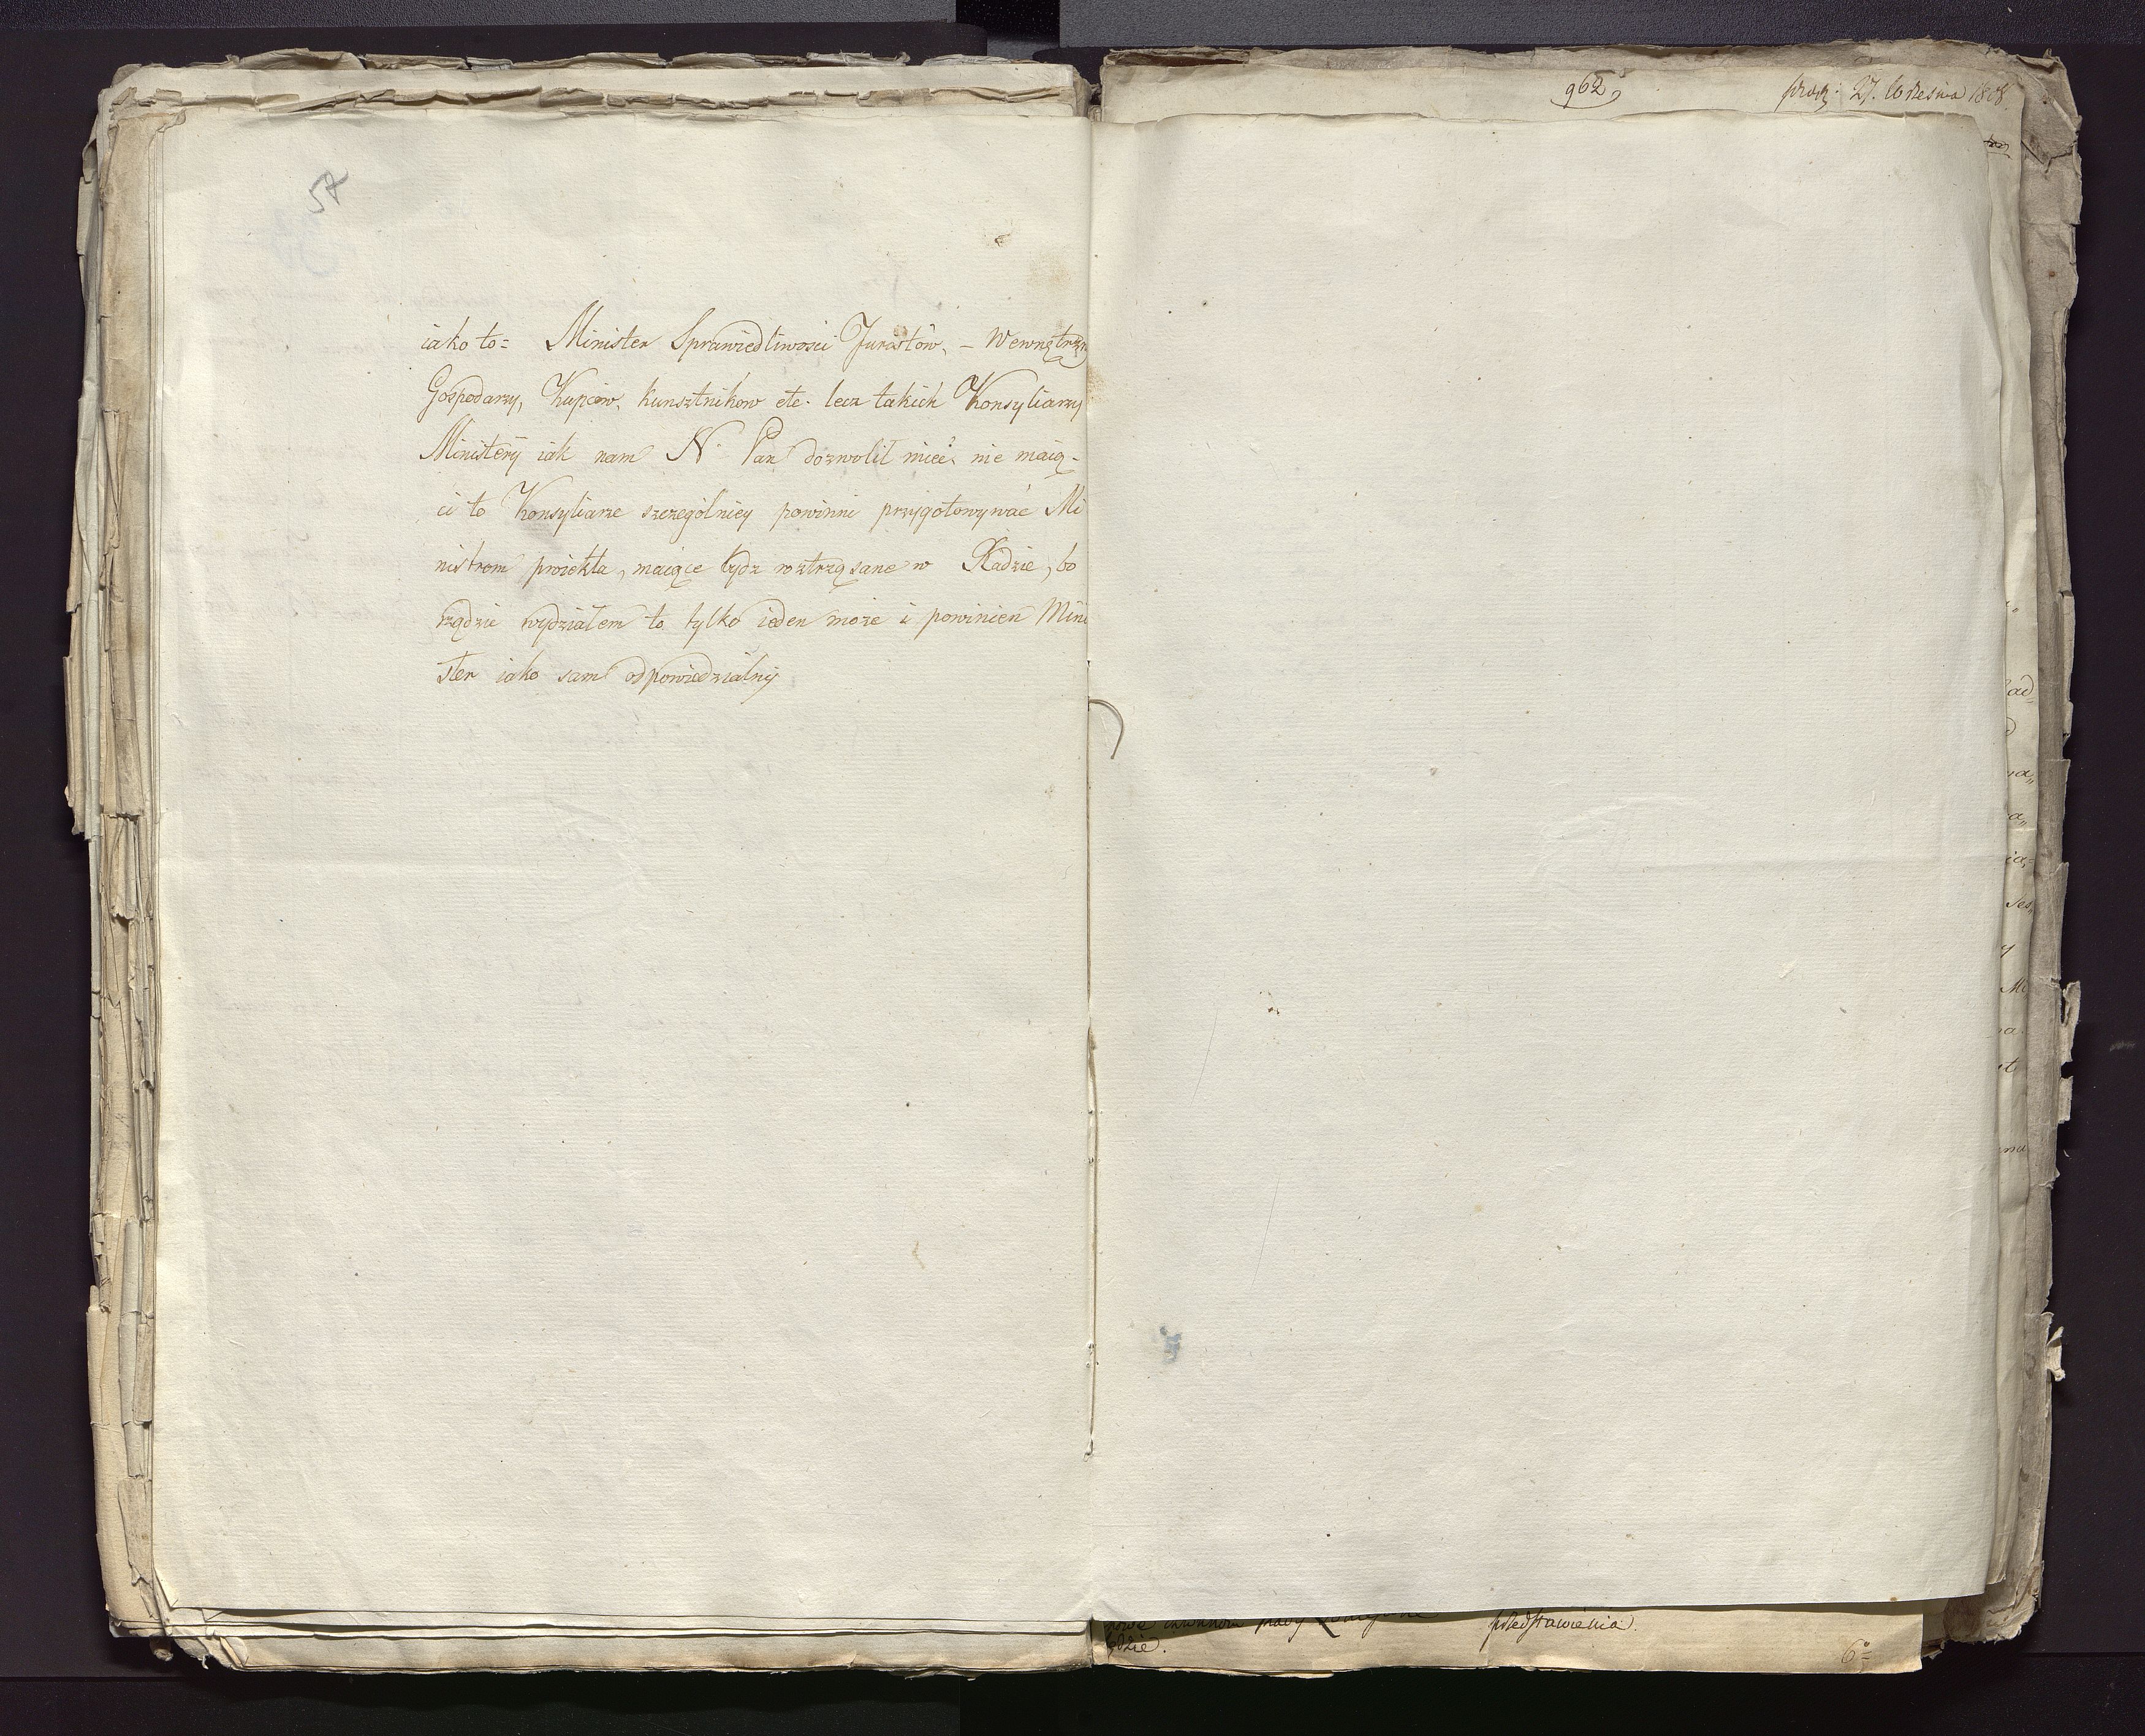 57
iako to= Minister Sprawiedliwosci Juristow, – Wewnętrzn
Gospodarzy, Kupcow, kunsztnikow etc. lecz takich Konsyliarzy
Ministeryi iak nam N. Pan dozwolił mieć, nie maią-
ci to Konsyliarze szczegolniey powinni przygotowywać Mi
nistrom proiekta, maiące bydz roztrząsane w Radzie, bo
rządzie wydziałem to tylko ieden może i powinien Mini
ster iako sam odpowiedzialny
962
27. Września 1808
przedstawienia.